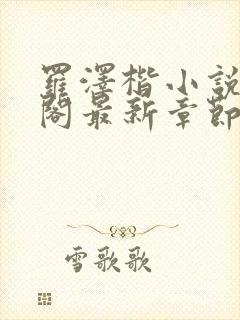 羅澤楷小說
閣最新章節
雪歌歌